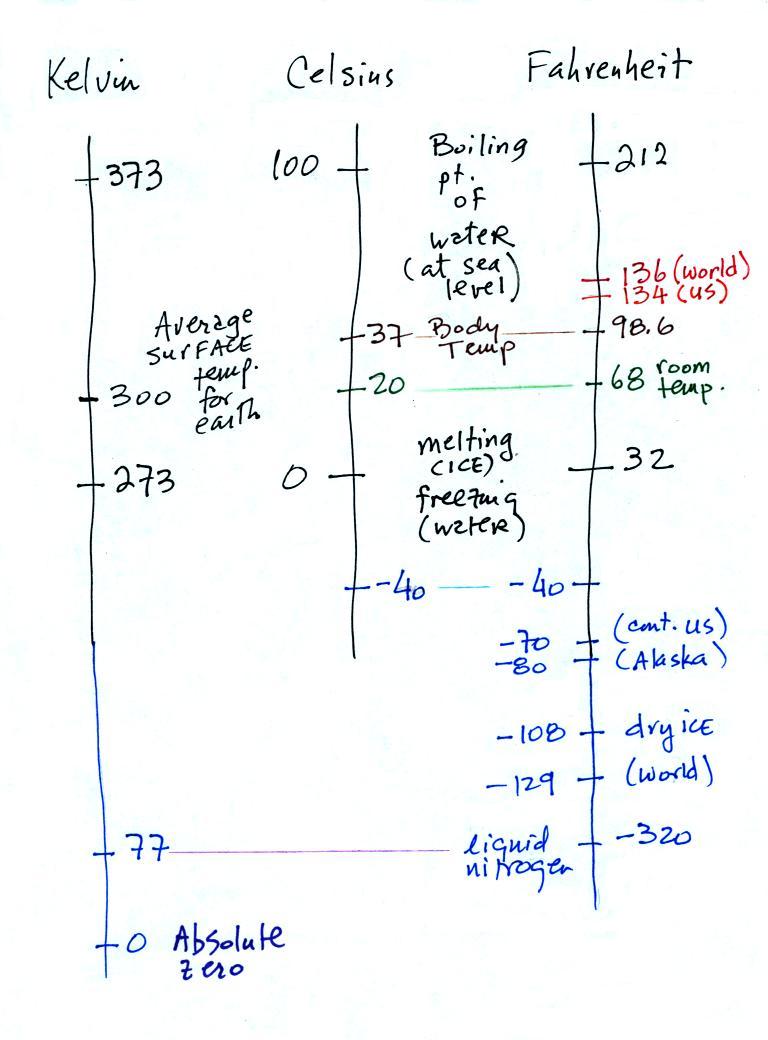 Kelvin Celsius Fahrenheit
373
100
Boiling
pt.
of
water
(at sea
level)
212
136 (world)
134 (us)
Average
surFACE
temp.
for
earth
37 Body
Temp
98.6
300
20
68 room
temp.
273
0
melting
(ICE)
freezing
(water)
32
-40 -40
-70 (cont. us)
-80 (Alaska)
-108 dry ICE
-129 (world)
77
liquid
nitrogen
-320
0 Absolute
zero